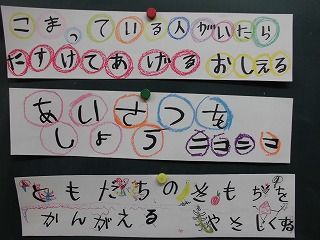 こまっている人がいたら
たすけてあげる おしえる
あいさつを
しよう ニコニコ
ともだちのきもちを
かんがえる やさしくする